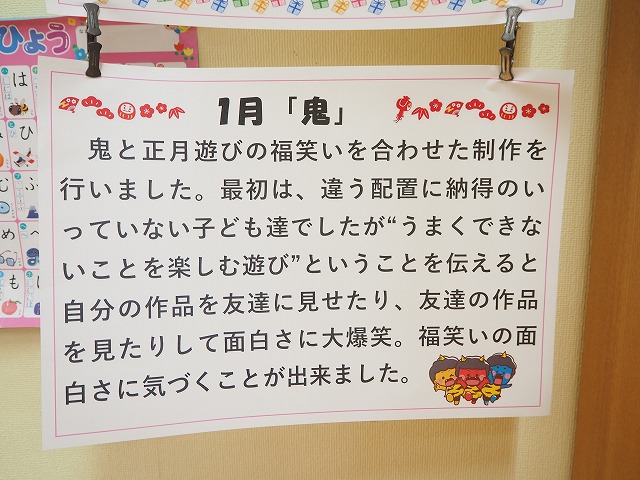 ひょう
は
ひ
む
ふ
め
へ
も
1月「鬼」
鬼と正月遊びの福笑いを合わせた制作を
行いました。最初は、違う配置に納得のい
っていない子ども達でしたが“うまくできな
いことを楽しむ遊び”ということを伝えると
自分の作品を友達に見せたり、友達の作品
を見たりして面白さに大爆笑。福笑いの面
白さに気づくことが出来ました。